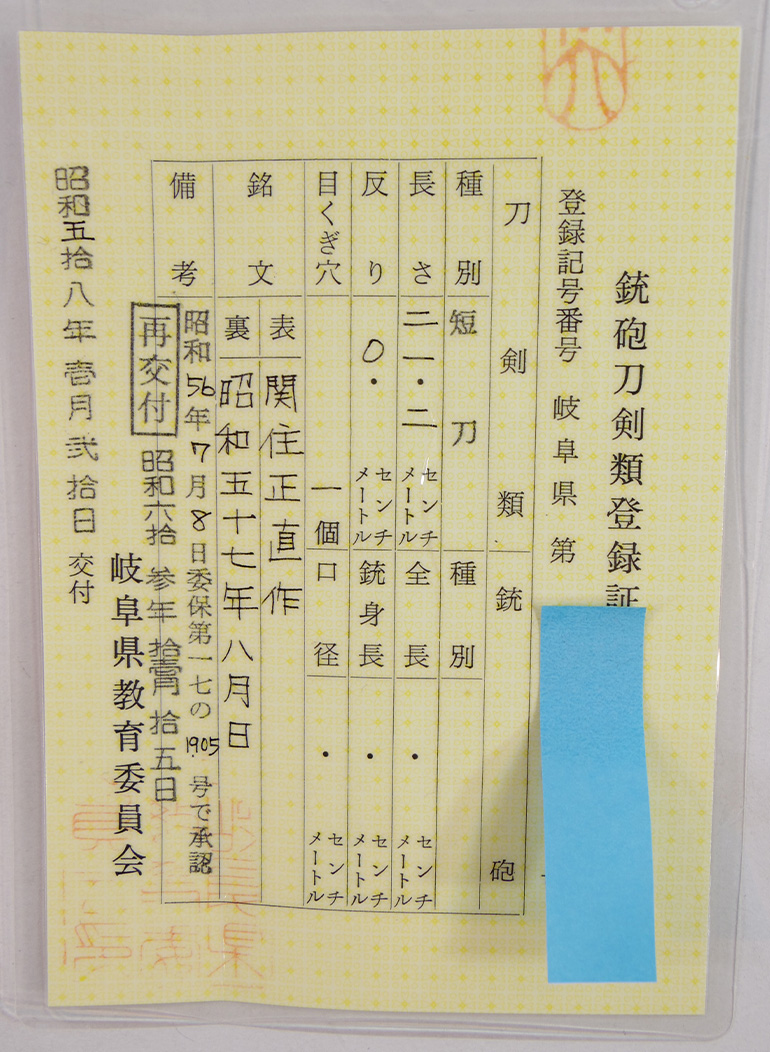 銃砲刀剣類登録証
登録記号番号 岐阜県 第
刀剣類 銃砲
種別 短刀 種別
長さ 二一・二 センチメートル 全長 ・ センチメートル
反り 〇・ センチメートル 銃身長 ・ センチメートル
目くぎ穴 一個 口径 ・ センチメートル
銘文 表 関住正直作
裏 昭和五十七年八月日
備考 昭和56年7月8日委保第一七の1905号で承認
再交付 昭和六拾参年拾壱月拾五日
岐阜県教育委員会
昭和五拾八年壱月弐拾日交付